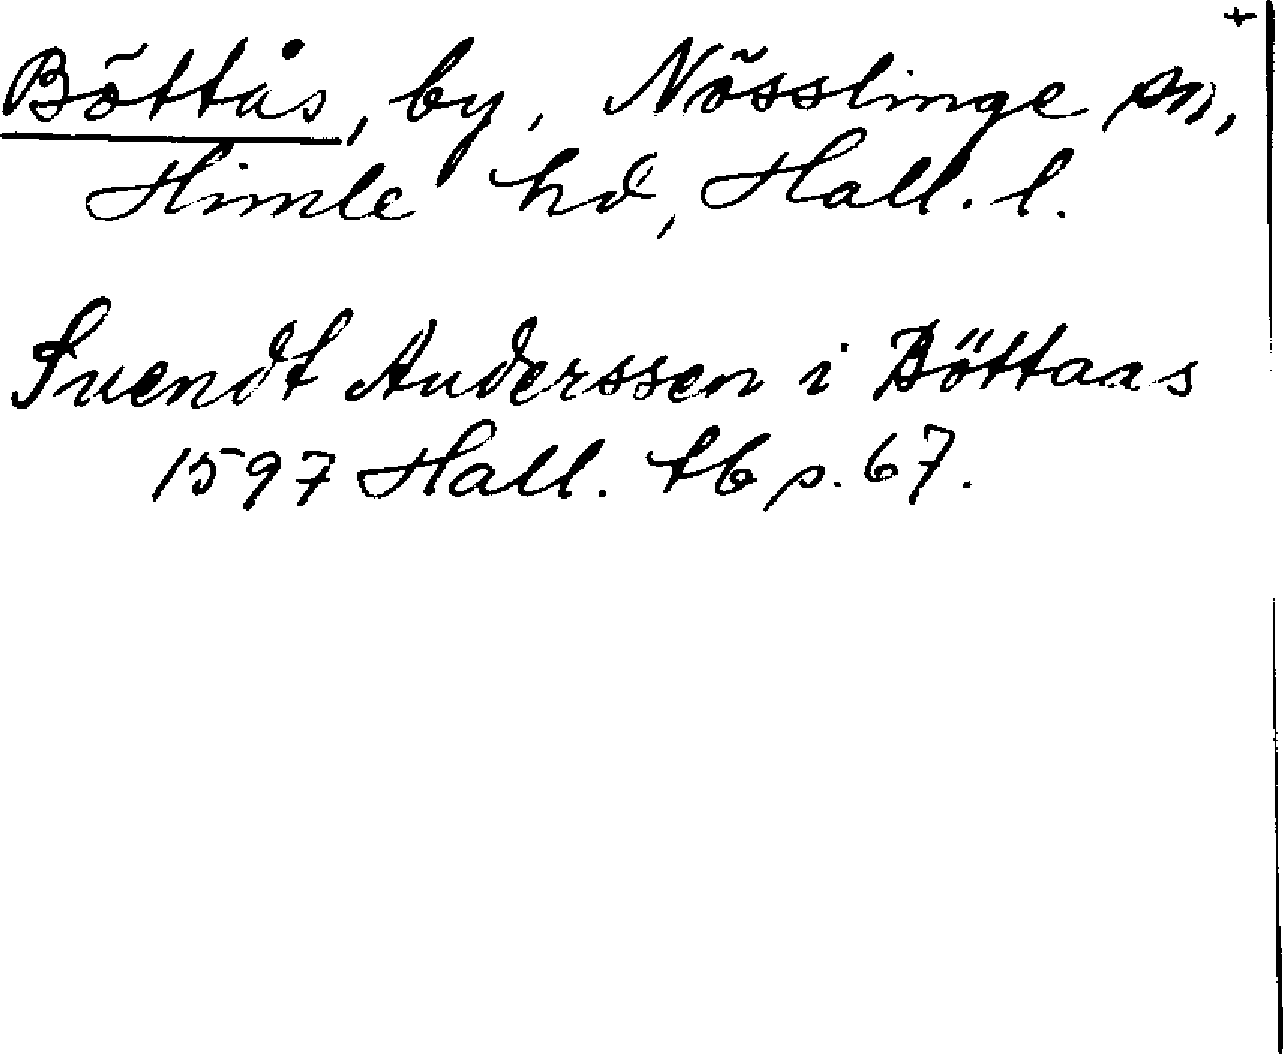 +
Böttås, by, Nösslinge sn,
Himle hd, Hall. l.
Svendt Anderssen i Böttaas
1597 Hall. tb p. 67.